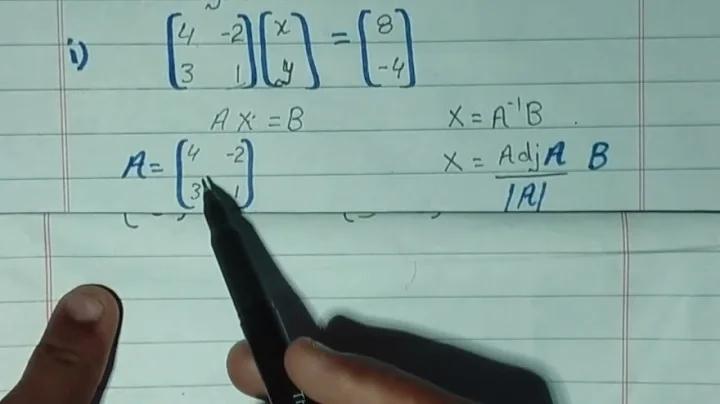 i) [4 -2 3 1] [x y] = [8 -4]
A X = B X = A⁻¹B .
A = [4 -2 3 1] X = AdjA/|A| B